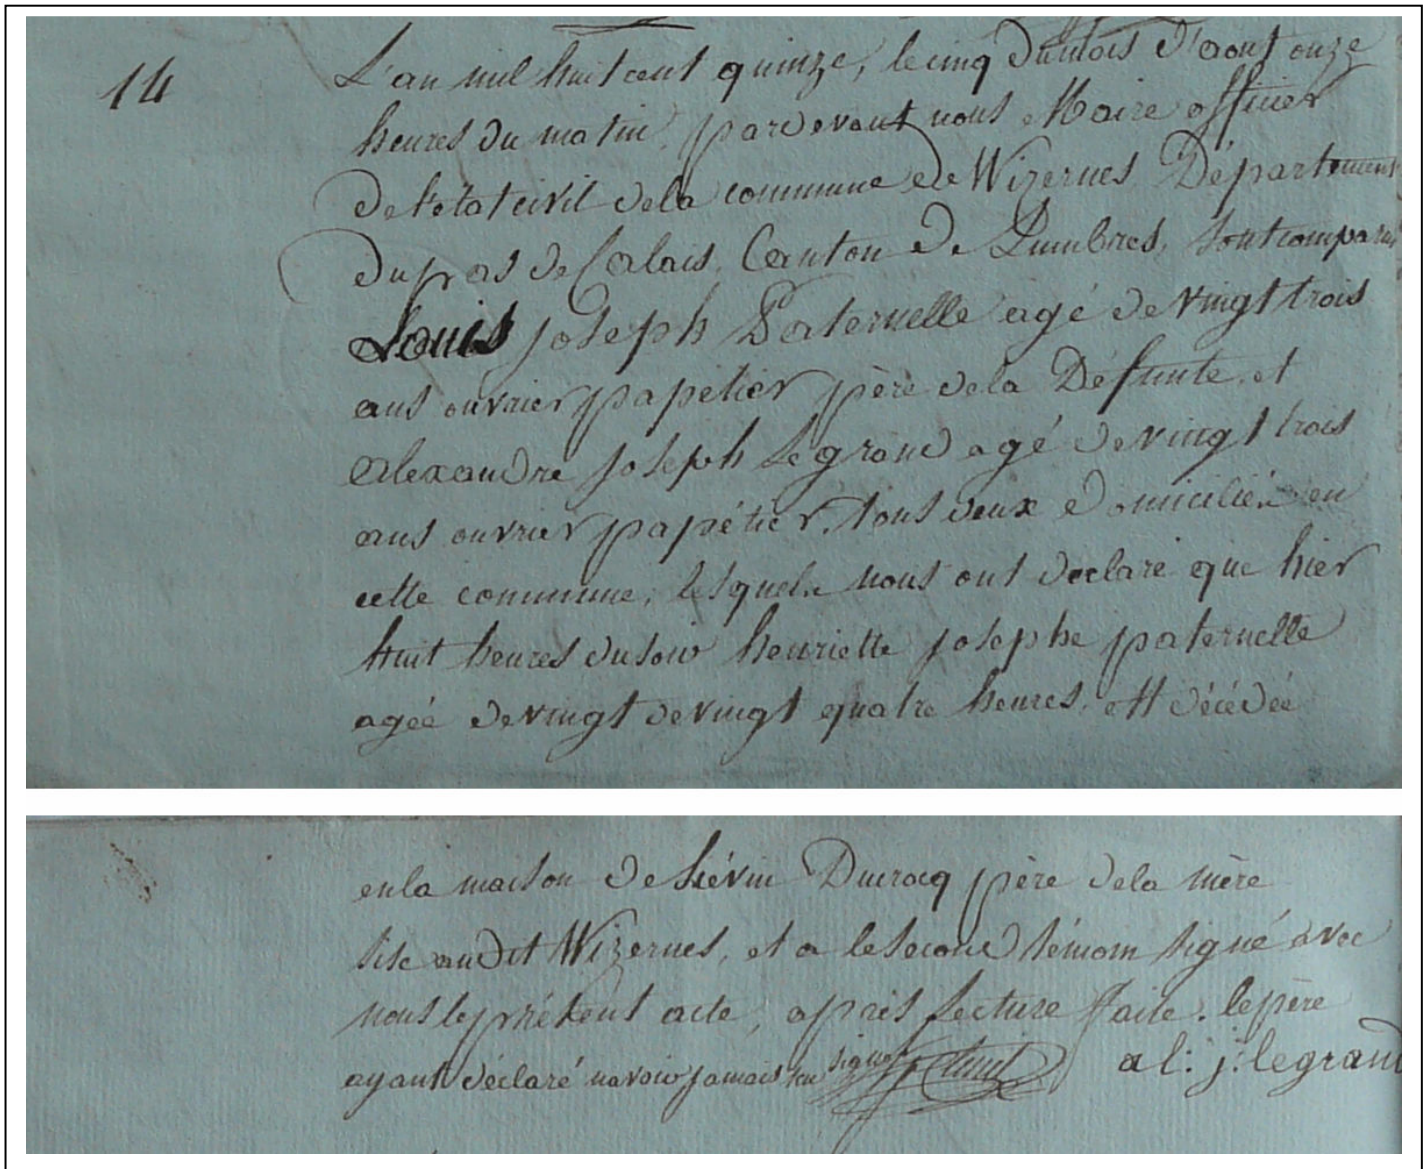 14
L'an mil huit cent quinze, le cinq du mois d'aout onze
heures du matin, pardevant nous Maire officier
de l'etat civil de la commune de Wizernes Département
du pas de Calais, Canton de Lumbres, sont comparus
Louis joseph Paternelle agé de vingt trois
ans ouvrier papetier père de la Défunte, et
Alexandre joseph Legrand agé de vingt trois
ans ouvrier papétier, tous deux domiciliés en
cette commune, lesquels nous ont declaré que hier
huit heures du soir henriette josephe paternelle
agée de vingt de vingt quatre heures, est décédée
en la maison de Liévin Ducrocq père de la mère
sise audit Wizernes, et a le second témoin signé avec
nous le présent acte, après lecture faite. le père
ayant déclaré navoir jamais su signer
al: j: legrand